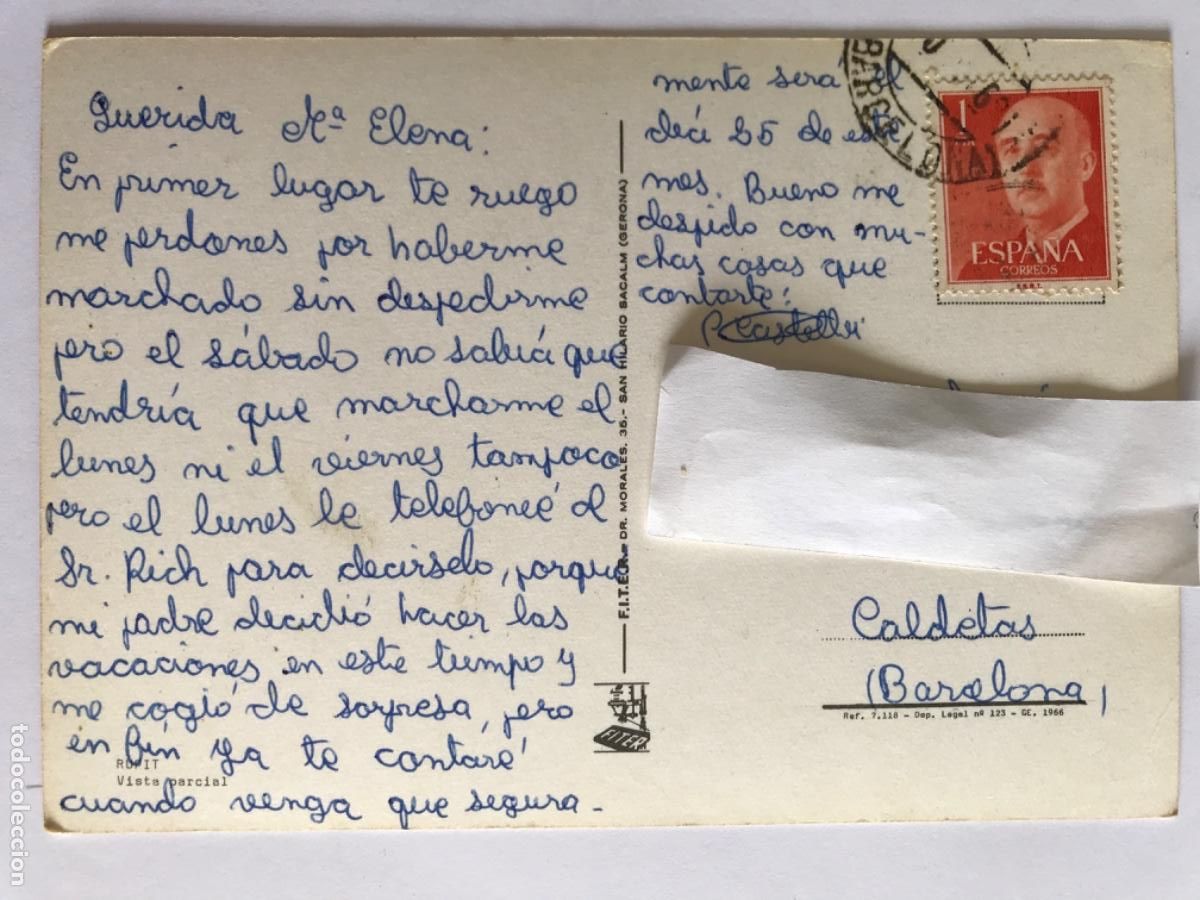 Querida Mª Elena:
En primer lugar te ruego
me perdones por haberme
marchado sin despedirme
pero el sábado no sabiá que
tendría que marcharme el
lunes ni el viernes tampoco
pero el lunes le telefoneé al
Sr. Rich para decirselo, porque
mi padre decidió hacer las
vacaciones en este tiempo y
me cogió de sorpresa, pero
en fin ya te contaré
cuando venga que segura-
mente será el
deci 25 de este
mes. Bueno me
despido con mu-
chas cosas que
contarte:
RUPIT
Vista parcial
F.I.T.E.R.- DR. MORALES, 35.- SAN HILARIO SACALM (GERONA)
FITER
BARCELONA
1
ESPAÑA
CORREOS
Caldetas
(Barcelona)
Ref. 7.118 - Dep. Legal nº 123 - GE. 1966
todocoleccion